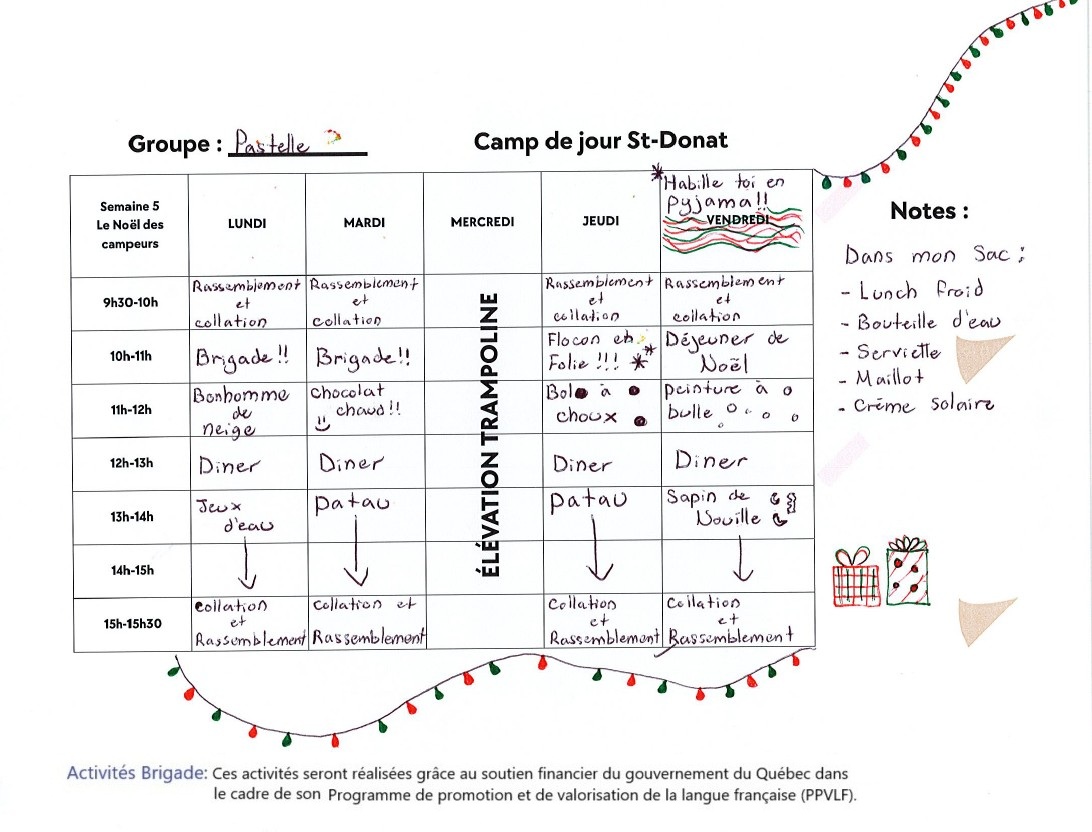 Groupe : Pastelle
Camp de jour St-Donat
Semaine 5
Le Noël des
campeurs
LUNDI
MARDI
MERCREDI
JEUDI
*Habille toi en
Pyjama!!
VENDREDI
9h30-10h
Rassemblement
et
collation
Rassemblement
et
collation
ÉLÉVATION TRAMPOLINE
Rassemblement
et
collation
Rassemblement
et
collation
10h-11h
Brigade!!
Brigade!!
Flocon en
Folie!!!
Déjeuner de
Noël
11h-12h
Bonhomme
de
neige
Chocolat
chaud!!
Bol à
choux
Peinture à
bulle
12h-13h
Diner
Diner
Diner
Diner
13h-14h
Jeux
d'eau
Patau
Patau
Sapin de
Nouille
14h-15h
15h-15h30
Collation
et
Rassemblement
Collation et
Rassemblement
Collation
et
Rassemblement
Collation
et
Rassemblement
Notes :
Dans mon Sac :
- Lunch froid
- Bouteille d'eau
- Serviette
- Maillot
- Crème solaire
Activités Brigade: Ces activités seront réalisées grâce au soutien financier du gouvernement du Québec dans
le cadre de son Programme de promotion et de valorisation de la langue française (PPVLF).